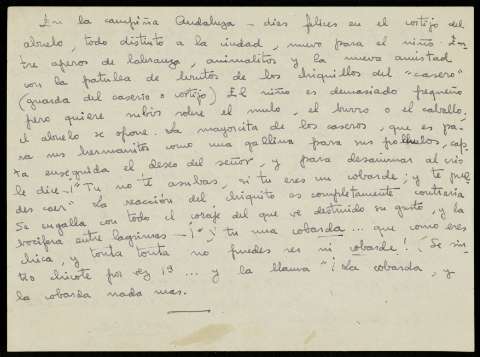 En la campiña Andaluza - dias felices en el cortijo del
abuelo, todo distinto a la ciudad, nuevo para el niño. En-
tre aperos de labranza, animalitos y la nueva amistad
con la patulea de brutitos de los chiquillos del "casero"
(guarda del caserio o cortijo) El niño es demasiado pequeño
pero quiere subirse sobre el mulo, el burro o el caballo,
el abuelo se opone. La mayorcita de los caseros, que es pa-
ra sus hermanitos como una gallina para sus polluelos, cap-
ta enseguida el deseo del señor, y para desanimar al
le dice - ¡"Tu no te asubas, si tu eres un cobarde; y te pue-
des caer" La reacción del chiquito es completamente contraria
Se engalla con todo el coraje del que ve destruido su gusto, y la
vocifera entre lagrimas - ¡"y tu una cobarda ... que como eres
chica, y tonta tonta no puedes ser ni cobarde! (Se sin-
tio chicote por vez 1ª ... y la llama "¡La cobarda, y
la cobarda nada mas.